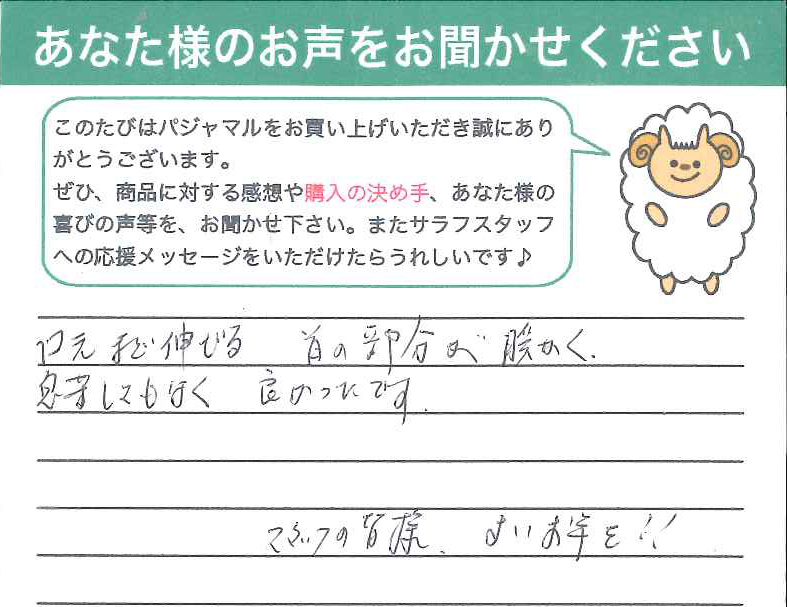 あなた様のお声をお聞かせください
このたびはパジャマルをお買い上げいただき誠にあり
がとうございます。
ぜひ、商品に対する感想や購入の決め手、あなた様の
喜びの声等を、お聞かせ下さい。またサラフスタッフ
への応援メッセージをいただけたらうれしいです♪
口元まで伸びる 首の部分が 暖かく、
息苦しくもなく 良かったです。
スタッフの皆様、よいお年を!!